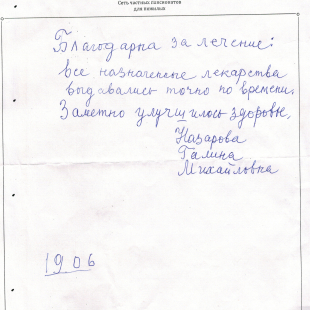 Сеть частных пансионатов
для пожилых
Благодарна за лечение:
все назначенные лекарства
выдавались точно по времени.
Заметно улучшилось здоровье.
Назарова
Галина
Михайловна
19 06